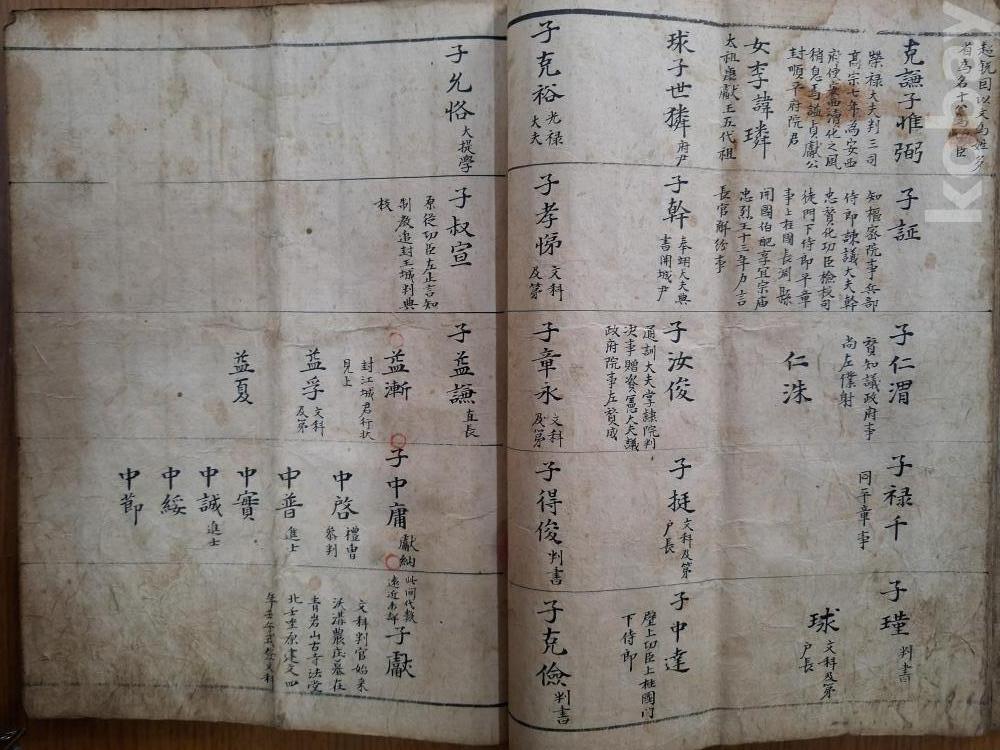 克謙子惟弼
榮禄大夫判三司
高宗七年為安西
府使禀西清化之風
稍息焉謚貞獻公
封順平府院君
女李諱璘
太祖康獻王五代祖
球子世 府尹
子克裕 光禄
大夫
子証 知樞密院事兵部
侍郎諫議大夫幹
忠賛化功臣檢校司
徒門下侍郎平章
事上柱國長淵縣
開國伯配享宜宗庙
忠烈王十三年力言
長官解紛事
子幹 奉翊大夫典
書開城尹
子孝悌 文科
及第
子仁渭 賛知議政府事
尚左僕射
仁洙
子汝俊
通訓大夫掌隷院判
決事贈資憲大夫議
政府院事左賛成
子章永 文科
及第
子禄千
同平章事
子挺 文科及第
户長
子得俊 判書
子瑾 判書
球 文科及第
户長
子中達
壁上功臣上柱國門
下侍郎
子克儉 判書
子允恪 大提學
子叔宣
原從功臣左正言知
製教追封王城判典
校
子益謙 直長
益漸
封江城君行状
見上
益孚 文科
及第
益夏
子中庸 獻納
中啓 禮曹
叅判
中普 進士
中實
中誠 進士
中綏
中節
此间代数
遠近未詳
子獻
文科判官始来
沃溝農庄墓在
青岩山古寺法堂
北壬坐原建文四
年壬午文科
kobay